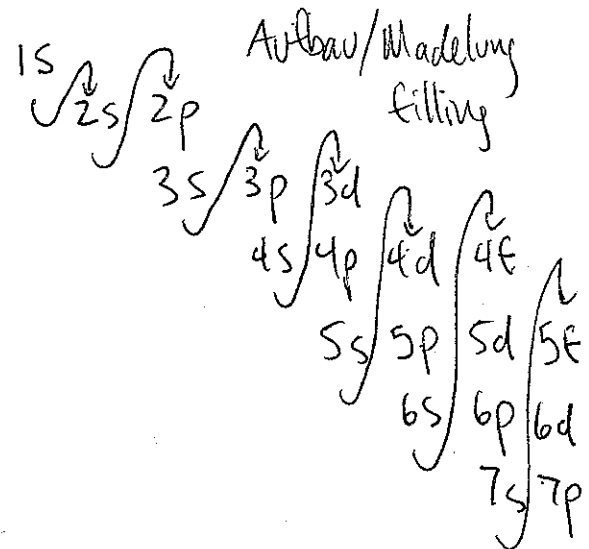 Aufbau/Madelung
filling
1s
2s 2p
3s 3p 3d
4s 4p 4d 4f
5s 5p 5d 5f
6s 6p 6d
7s 7p